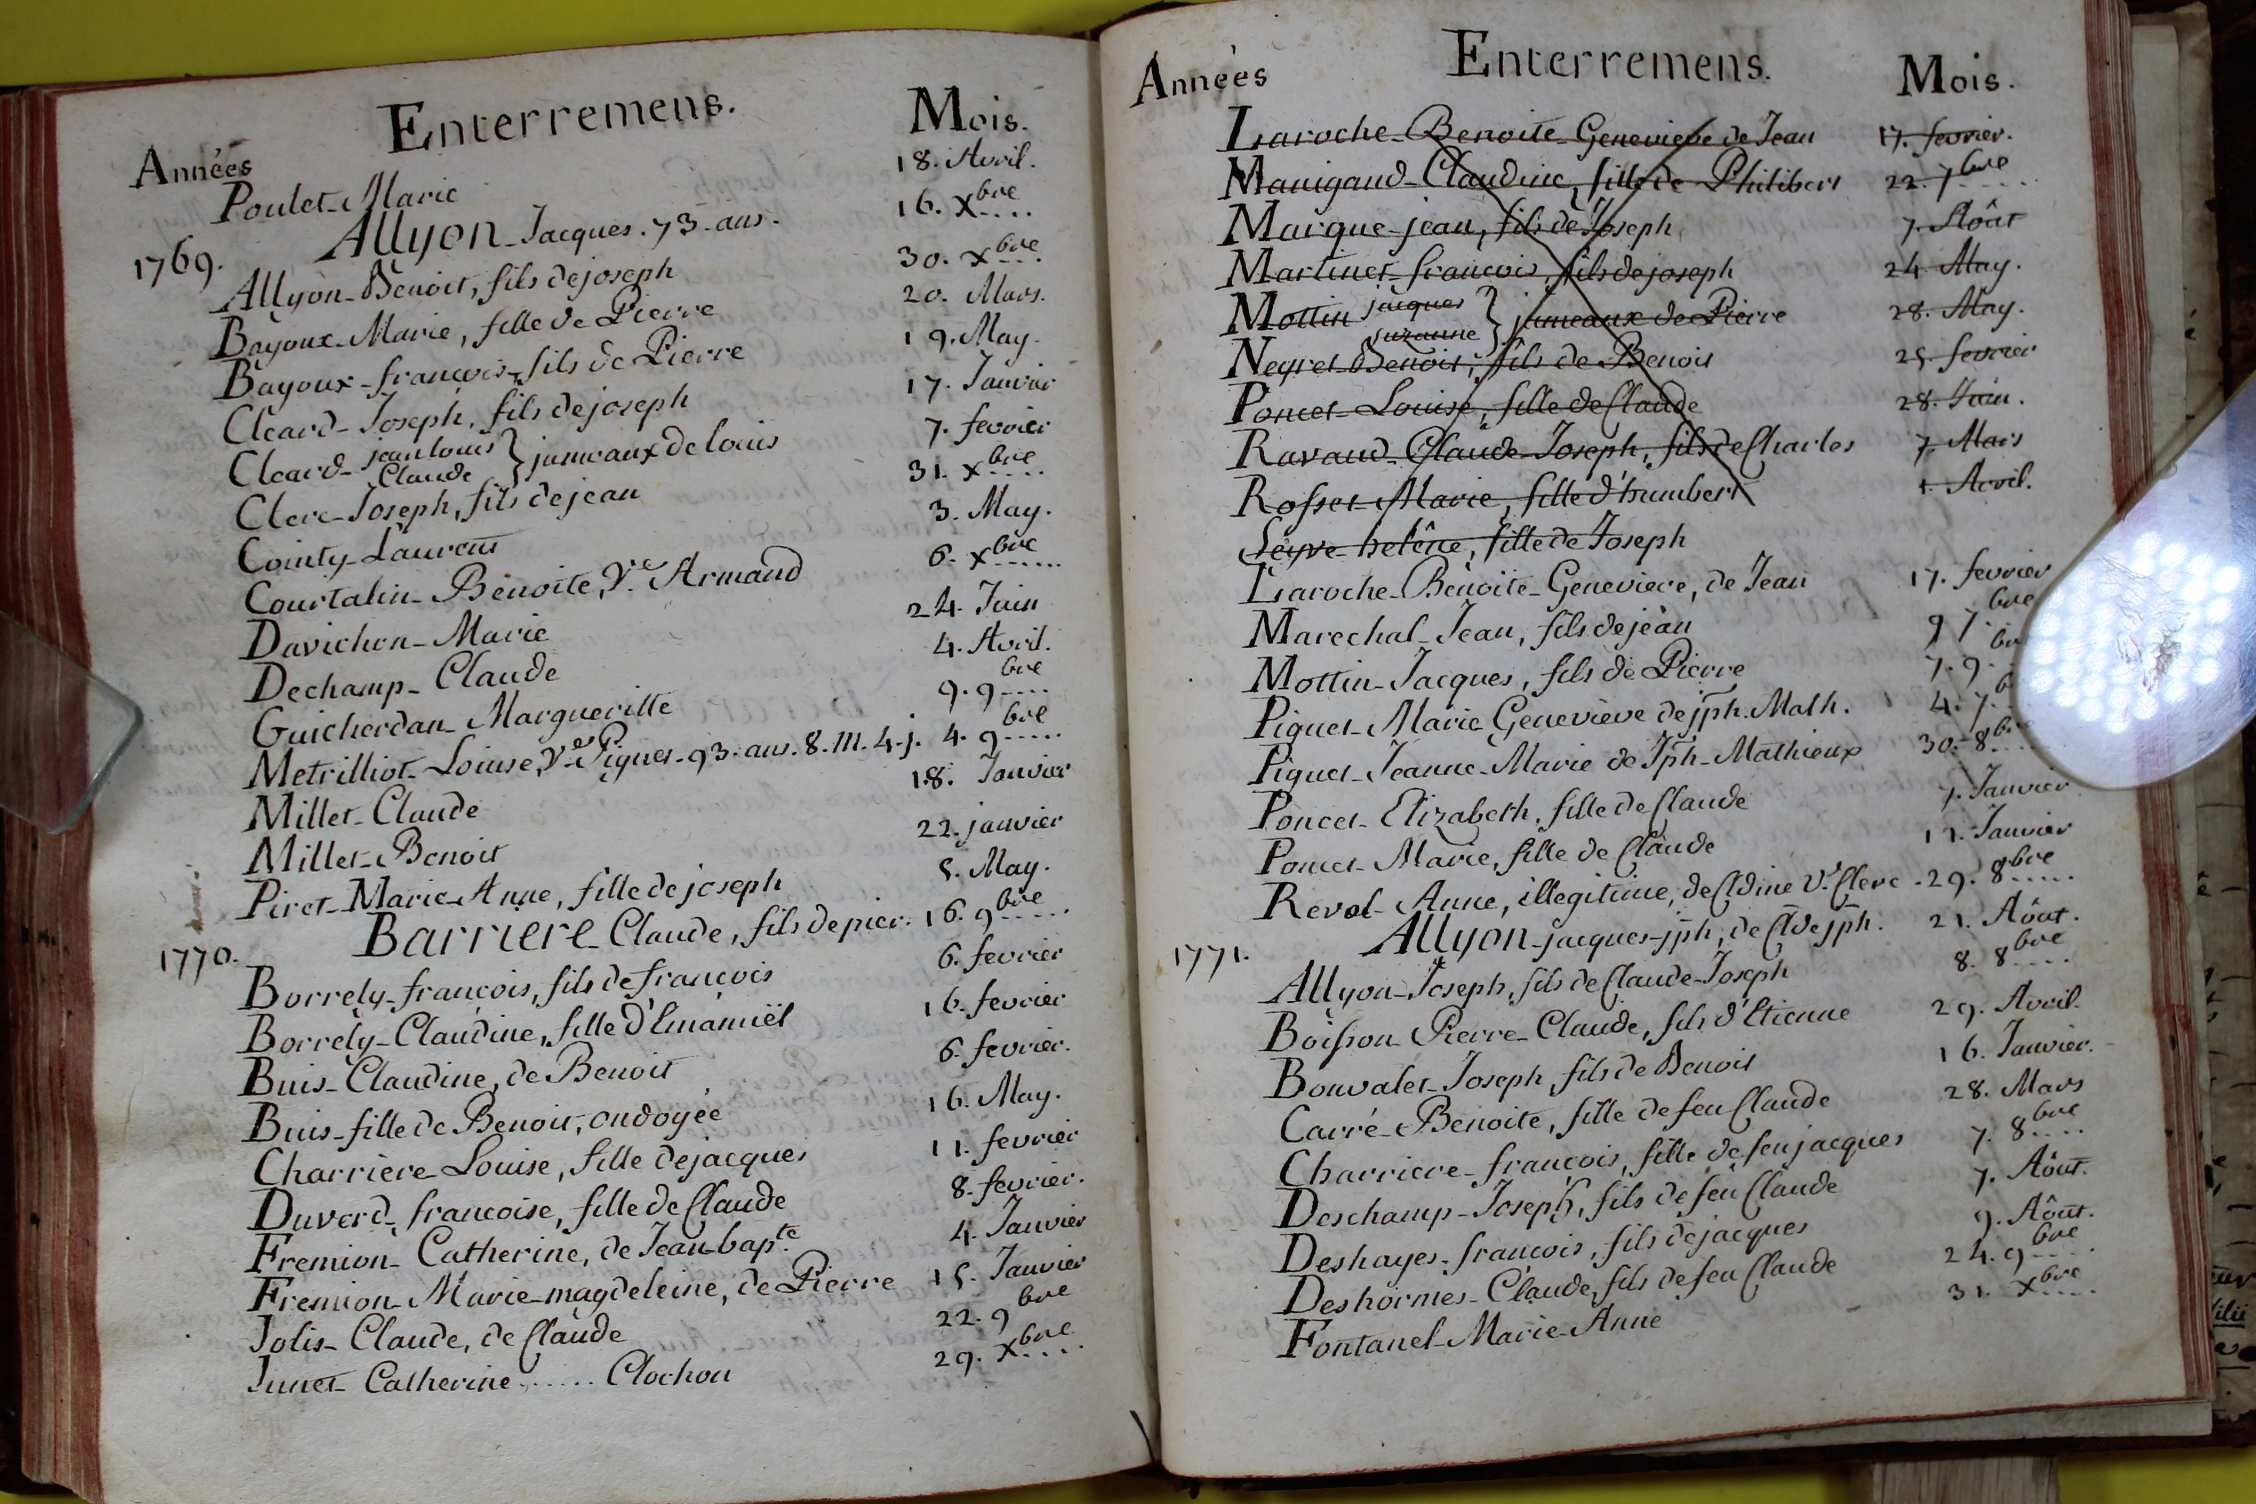 Enterremens.
Années
Mois.
Poulet_Marie 18. Avril.
1769. Allyon_Jacques. 73_ans. 16. Xbre....
Allyon_Benoit, fils de joseph 30. xbre...
Bayoux_Marie, fille de Pierre 20. Mars.
Bayoux_françois_fils de Pierre 19. May.
Cleard_Joseph, fils de joseph 17. Janvier
Cleard_ jean louis } jumeaux de louis 7. fevrier
Claude
Clerc_Joseph, fils de jean 31. xbre....
Cointy_Laurent 3. May.
Courtalin_Benoite, Ve. Armand 6. xbre......
Davichon_Marie 24. Juin
Dechamp_ Claude 4. Avril.
Guicherdan_Margueritte 9. 9bre....
Metrilliot_Louise, Ve Pignet_93. ans. 8. m. 4. j. 4. 9bre.....
Millet_Claude 18. Janvier
Millet_Benoit 22. janvier
Piret_Marie_Anne, fille de joseph 5. May.
1770. Barriere_Claude, fils de pier. 16. 9bre.....
Borrely_françois, fils de françois 6. fevrier
Borrely_Claudine, fille d'Emamiël 16. fevrier
Buis_Claudine, de Benoit 6. fevrier.
Buis_fille de Benoit, ondoyée 16. May.
Charriere_Louise, fille de jacques 11. fevrier
Duverd_françoise, fille de Claude 8. fevrier.
Fremion_Catherine, de Jean_bapte. 4. Janvier
Fremion_Marie_magdeleine, de Pierre 15. Janvier
Jolis_Claude, de Claude 22. 9bre
Junet_Catherine...... Clochon 29. xbre....
Années
Enterremens.
Mois.
Laroche_Benoite_Genevieve de Jean 17. fevrier.
Manigand_Claudine, fille de Philibert 22. 7bre.....
Marque_jean, fils de Joseph 7. Aôut
Martinet_françois, fils de joseph 24. May.
Mottin jacques } jumeaux de Pierre 28. May.
suzanne
Negret_Benoit, fils de Benoit 25. fevrier
Poncet_Louise, fille de Claude 28. Juin.
Ravaud_Claude_Joseph, fils de Charles 7. Mars
Rosset_Marie, fille d'humbert 1. Avril.
Seyve_helêne, fille de Joseph
Laroche_Benoite_Genevieve, de Jean 17. fevrier
Marechal_Jean, fils de jean 9 7.bre
Mottin_Jacques, fils de Pierre 7. 9.
Piquet_Marie Genevieve de jph. Math. 4. 7.
Piquet_Jeanne_Marie de Jph_Mathieux 30. 8bre
Poncet_Elizabeth, fille de Claude 7. Janvier
Poncet_Marie, fille de Claude 11. Janvier
Revol_Anne, illegitime, de Cldine Ve Clerc_29. 8bre.....
1771. Allyon_jacques_jph, de Clde jph. 21. Aôut.
Allyon_Joseph, fils de Claude_Joseph 8. 8bre....
Boisson_Pierre_Claude, fils d'Etienne 29. Avril.
Bonvalet_Joseph, fils de Benoit 16. Janvier.
Carré_Benoite, fille de feu Claude 28. Mars
Charriere_françois, fille de feu jacques 7. 8bre....
Deschamp_Joseph, fils de feu Claude 7. Aôut.
Deshayes_françois, fils de jacques 9. Aôut.
Deshormes_Claude, fils de feu Claude 24. 9bre.....
Fontanel_Marie_Anne 31. Xbre....